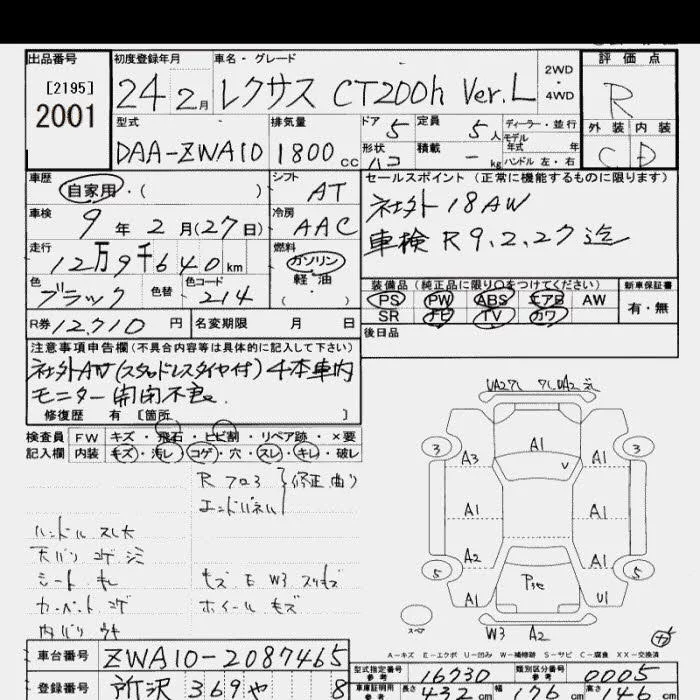 出品番号
[2195]
2001
初度登録年月
24 2月
車名・グレード
レクサス CT200h Ver.L
2WD
・
4WD
評価点
R
外装 内装
C D
型式
DAA-ZWA10
排気量
1800 cc
ドア 5
定員 5人
形状 ハコ
積載 - kg
ディーラー・並行
モデル年式 年
ハンドル 左・右
車歴
自家用・( )
シフト
AT
車検
9年2月(27日)
冷房
AAC
走行
12万9千640km
燃料
ガソリン
軽油
( )
色
ブラック
色替
色コード
214
R券 12,710円
名変期限 月 日
セールスポイント(正常に機能するものに限ります)
社外 18AW
車検 R9.2.27迄
装備品(純正品に限り○をつけてください)
PS PW ABS エアB AW
SR TV カワ
新車保証書
有・無
後日品
注意事項申告欄(不具合内容等は具体的に記入して下さい)
社外AW(スタッドレスタイヤ付)4本車内
モニター開閉不良。
修復歴 有 [箇所 ]
検査員 FW キズ・飛石・ヒビ割・リペア跡・×要
記入欄 内装 キズ・汚レ・コゲ・穴・スレ・キレ・破レ
R フロア
エンドパネル
修正曲り
ハンドル スレ大
天バリ コゲ シミ
シート キレ
カーペット コゲ
内バリ ウキ
キズ E W3 スリキズ
ホイール キズ
A1
3 3
A3 A1
A1 A1
A2 A1
5 5
A1 U1
スペア
W3 A2
A-キズ E-エクボ U-凹み W-補修跡 S-サビ C-腐食 XX-交換済
車台番号 ZWA10-2087465
登録番号 所沢 369 や 8
型式指定番号 参考 16730
類別区分番号 参考 0005
車庫証明用 参考 長さ 432cm 幅 176cm 高さ 146cm